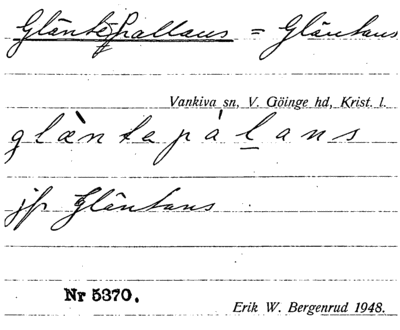 Gläntepallans = Gläntans
Vankiva sn, V. Göinge hd, Krist. l.
glæ̀ntepàlans
jfr Gläntans
Nr 5370.
Erik W. Bergenrud 1948.